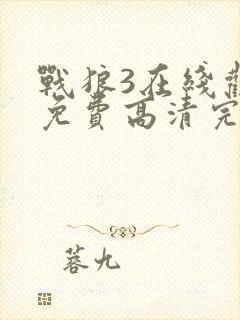 戰狼3在綫
免費高清完
蓉九